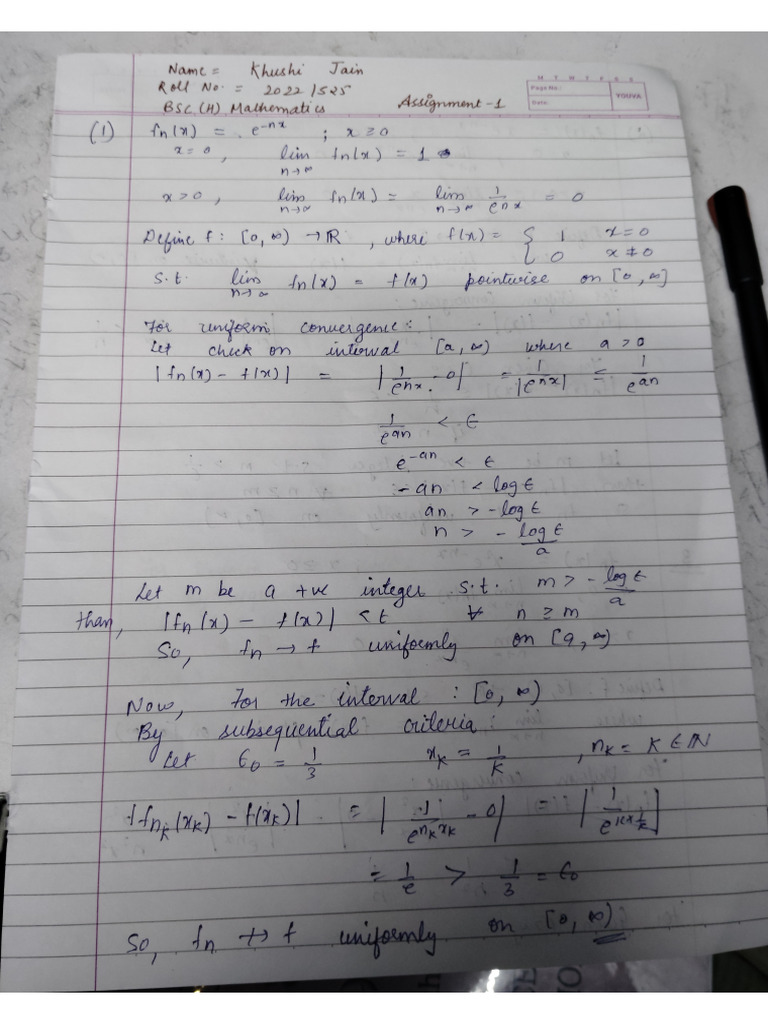 Name = Khushi Jain
Roll No. = 2022/525
BSC (H) Mathematics Assignment-1
M T W T F S S
Page No.:
Date:
YOUVA
(1) fn(x) = e^-nx ; x ≥ 0
x = 0, lim n→∞ fn(x) = 1
x > 0, lim n→∞ fn(x) = lim n→∞ 1/e^nx = 0
Define f: [0, ∞) → R, where f(x) = { 1 x = 0
0 x ≠ 0
s.t. lim n→∞ fn(x) = f(x) pointwise on [0, ∞]
For uniform convergenge:
Let check on interval [a, ∞) where a > 0
|fn(x) - f(x)| = |1/e^nx - 0| = 1/|e^nx| ≤ 1/e^an
1/e^an < ε
e^-an < ε
-an < log ε
an > - log ε
n > - log ε/a
Let m be a +ve integer s.t. m > - log ε/a
than, |fn(x) - f(x)| < ε ∀ n ≥ m
So, fn → f uniformly on [a, ∞)
Now, For the interval : [0, ∞)
By subsequential criteria:
Let ε0 = 1/3 xk = 1/k , nk = k ∈ N
|fnk(xk) - f(xk)| = |1/e^nkxk - 0| = |1/e^k×1/k|
= 1/e > 1/3 = ε0
So, fn ↛ f uniformly on [0, ∞)